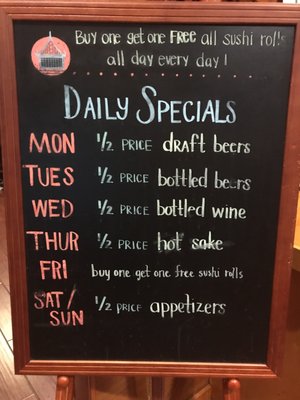 Buy one get one FREE all sushi rolls
all day every day!
DAILY SPECIALS
MON ½ PRICE draft beers
TUES ½ PRICE bottled beers
WED ½ PRICE bottled wine
THUR ½ PRICE hot sake
FRI buy one get one free sushi rolls
SAT/
SUN ½ PRICE appetizers